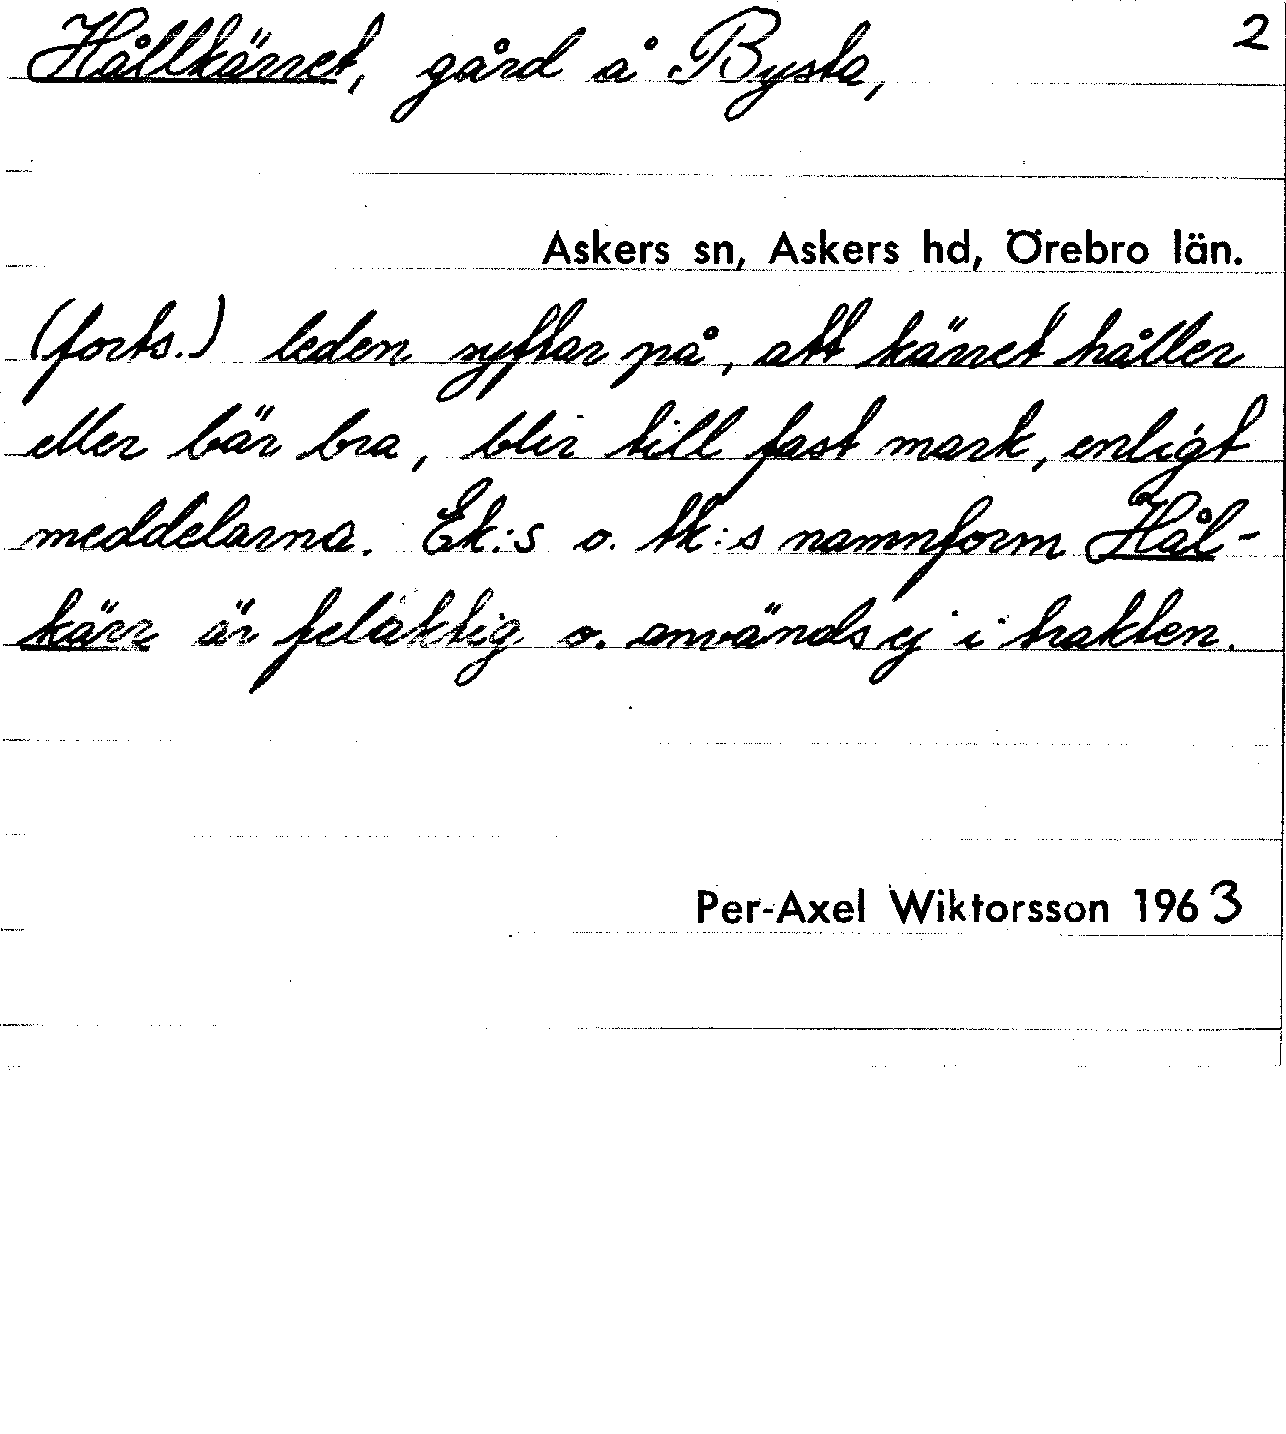 Hållkärret, gård å Bysta, 2
Askers sn, Askers hd, Örebro län.
(forts.) leden syftar på, att kärret håller
eller bär bra, blir till fast mark, enligt
meddelarna. Ek:s o. tk:s namnform Hål-
kärr är felaktig o. används ej i trakten.
Per-Axel Wiktorsson 1963